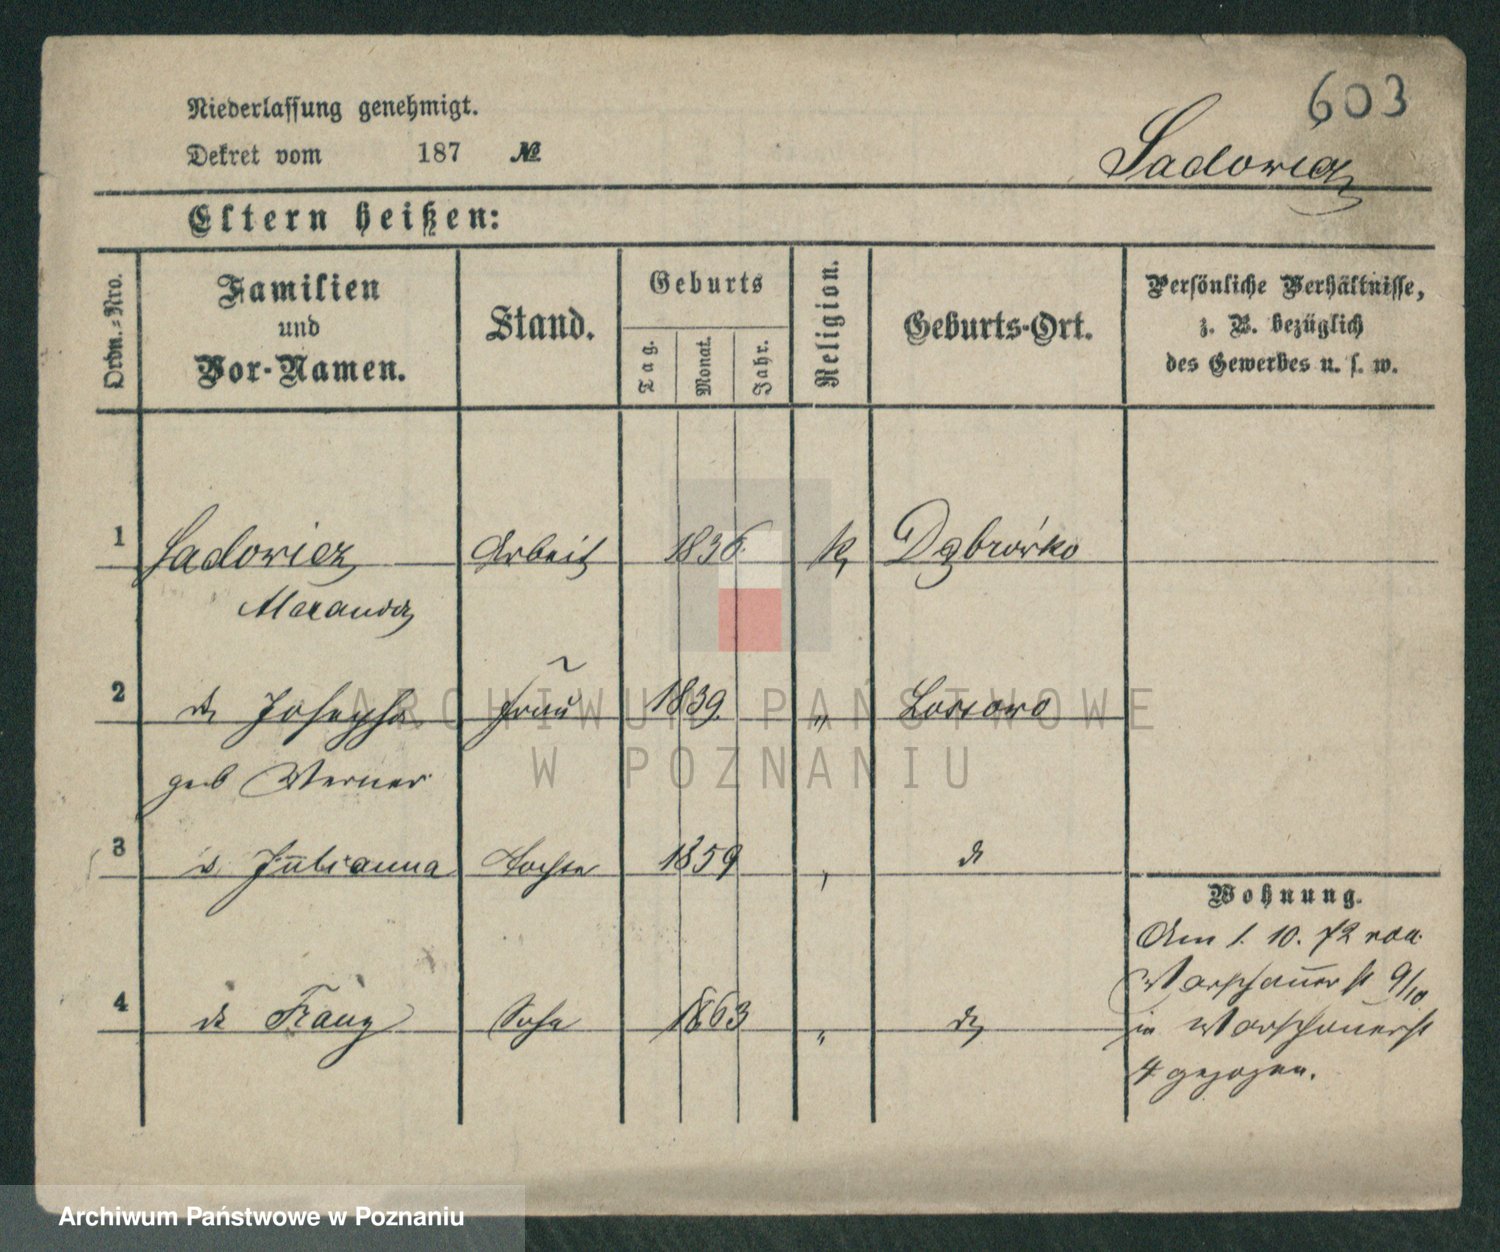 603
Niederlassung genehmigt.
Dekret vom 187 №
Sadowicz
Eltern heißen:
Ordn.-Nro.
Familien
und
Vor-Namen.
Stand.
Geburts
Tag.
Monat.
Jahr.
Religion.
Geburts-Ort.
Persönliche Verhältnisse,
z. B. bezüglich
des Gewerbes u. s. w.
1 Sadowicz Arbeit 1836 k Dąbrówko
Alexander
2 do Josepha Frau 1839 " Lossowo
geb Werner
3 do Julianna Tochter 1859 " do
Wohnung.
Am 1. 10. 72 von
Warschauerst 9/10
4 do Franz Sohn 1863 " do
in Warschauerst
4 gezogen.
ARCHIWUM PAŃSTWOWE
W POZNANIU
Archiwum Państwowe w Poznaniu